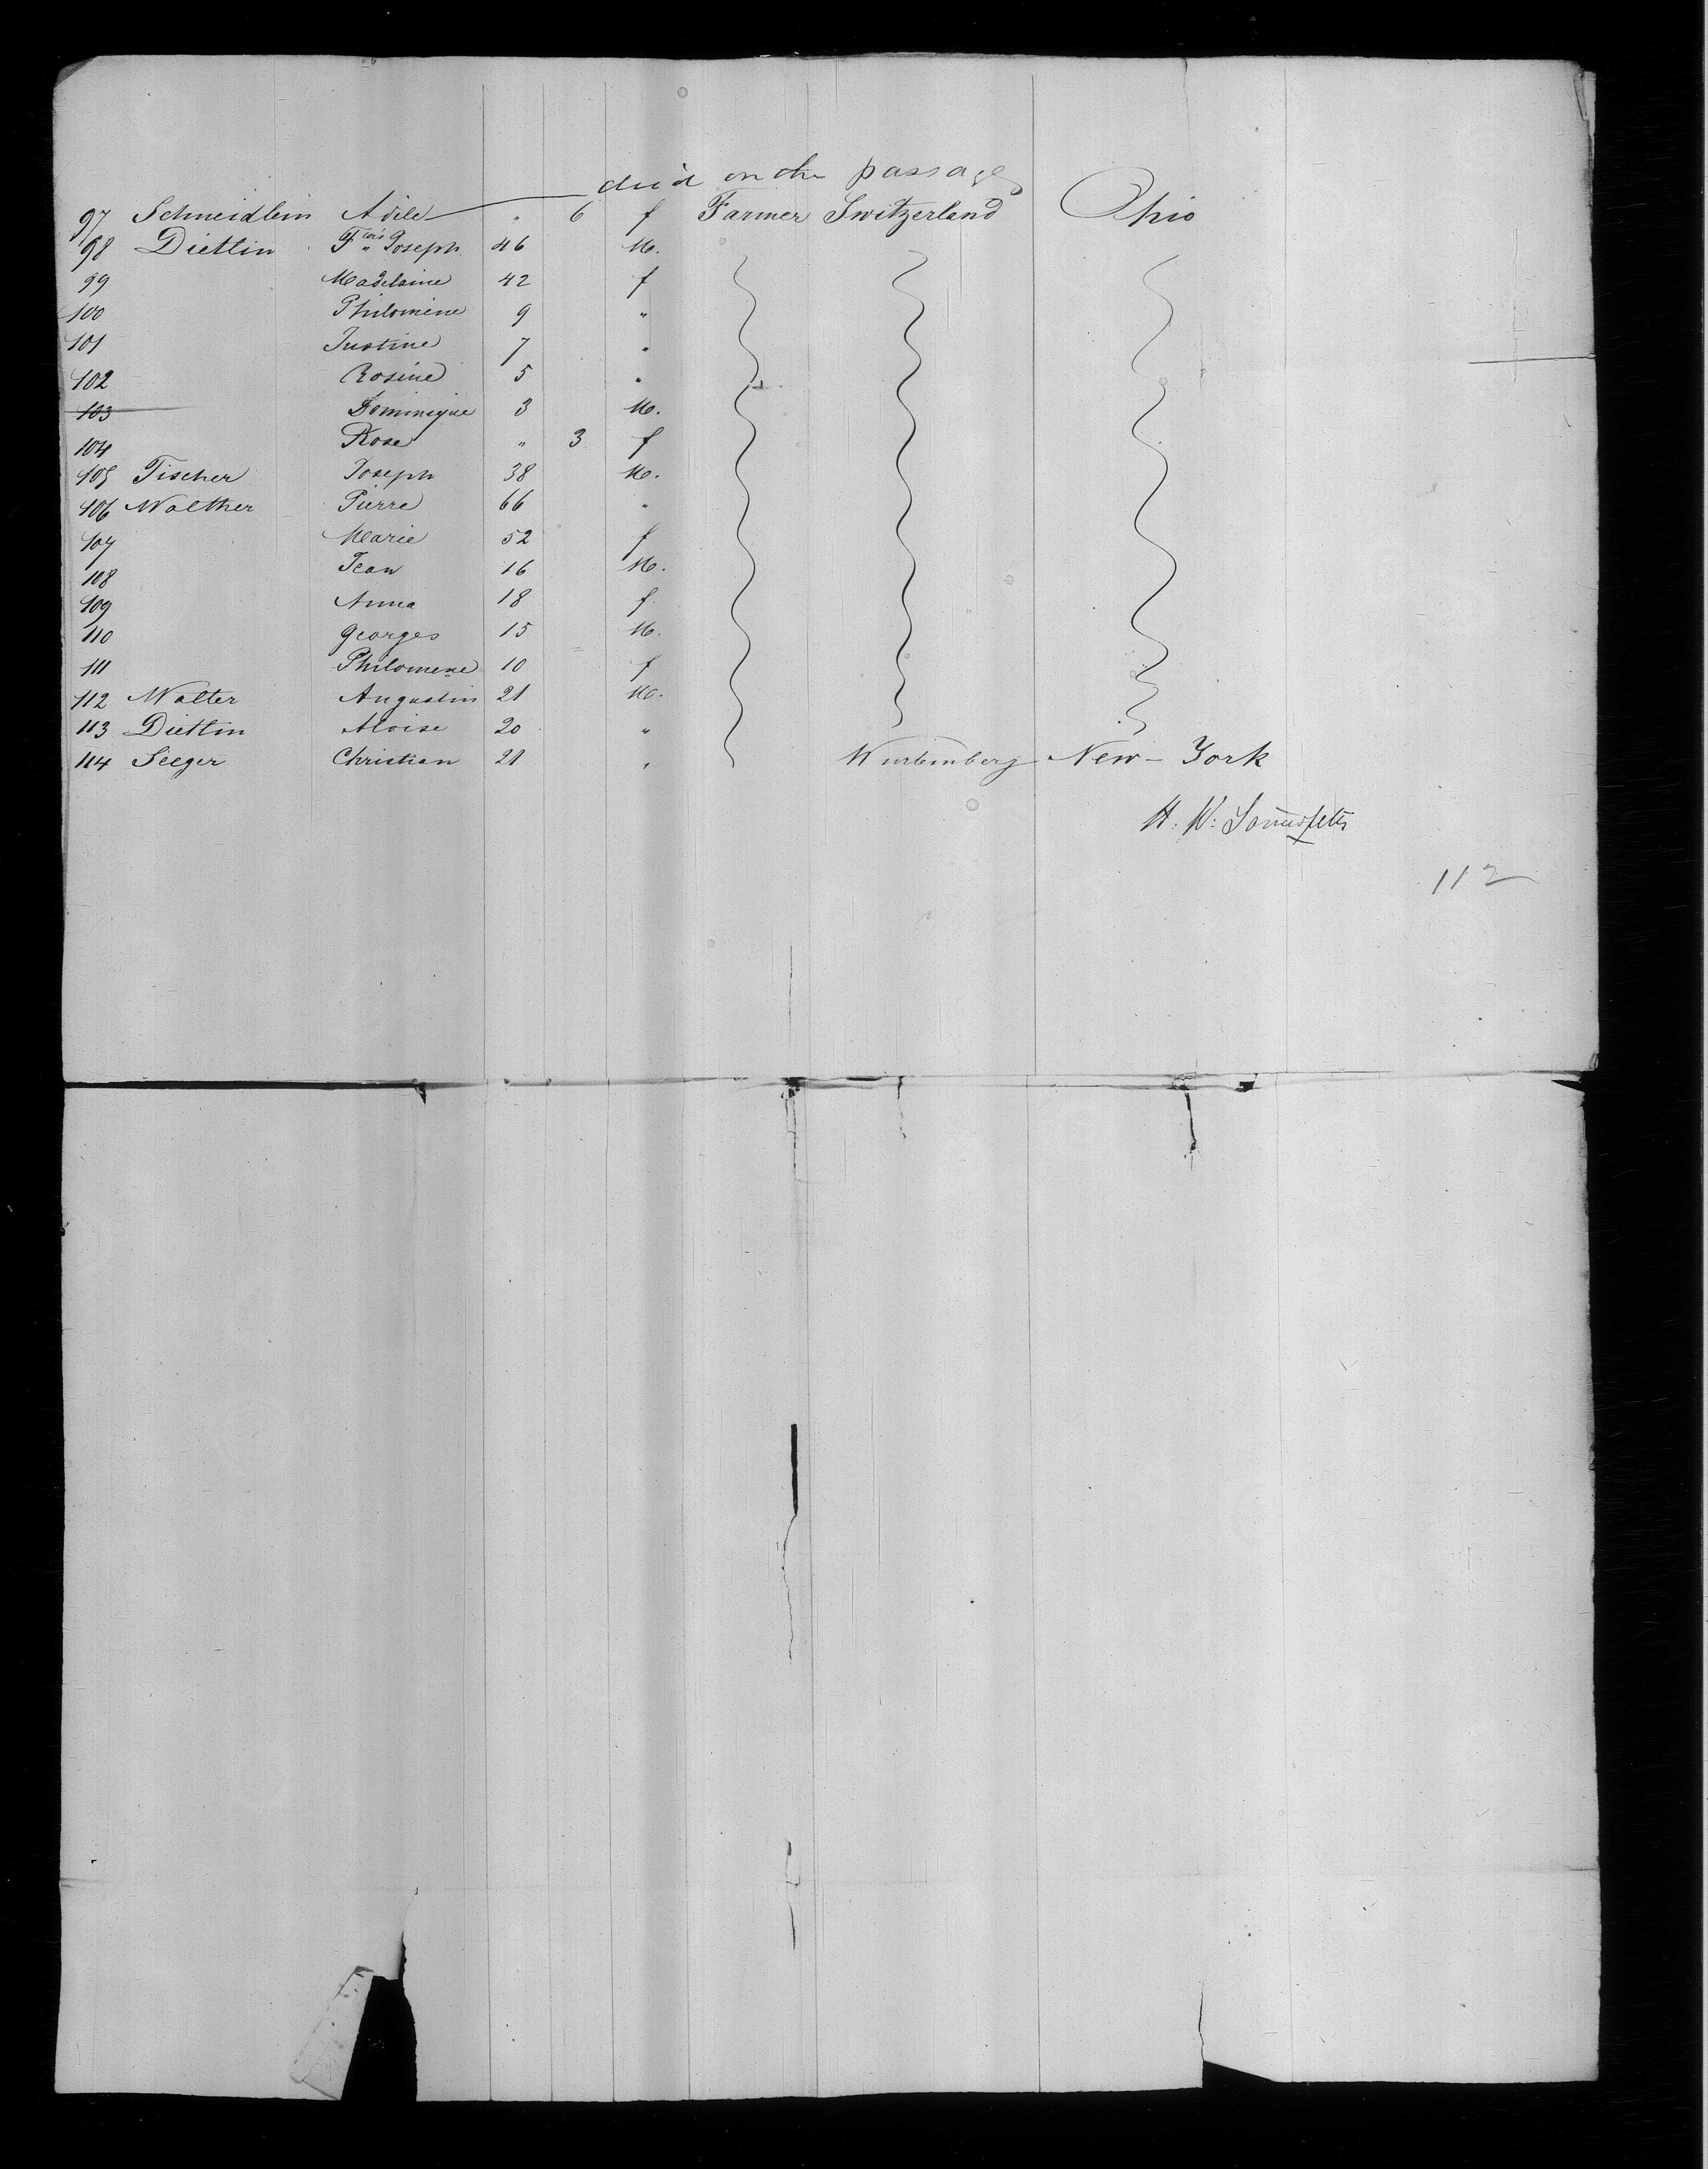 died on the passage
97 Schneidlein Adile " 6 f Farmer Switzerland Ohio
98 Dietlin Fçois Joseph 46 M.
99 Madelaine 42 f
100 Philomène 9 "
101 Justine 7 "
102 Rosine 5 "
103 Dominique 3 M.
104 Rose " 3 f
105 Fischer Joseph 38 M.
106 Walther Pierre 66 "
107 Marie 52 f
108 Jean 16 M.
109 Anna 18 f
110 Georges 15 M.
111 Philomene 10 f
112 Walter Augustin 21 M.
113 Dietlin Aloise 20 "
114 Seeger Christian 21 " Wurtemberg New-York
H. W:
112